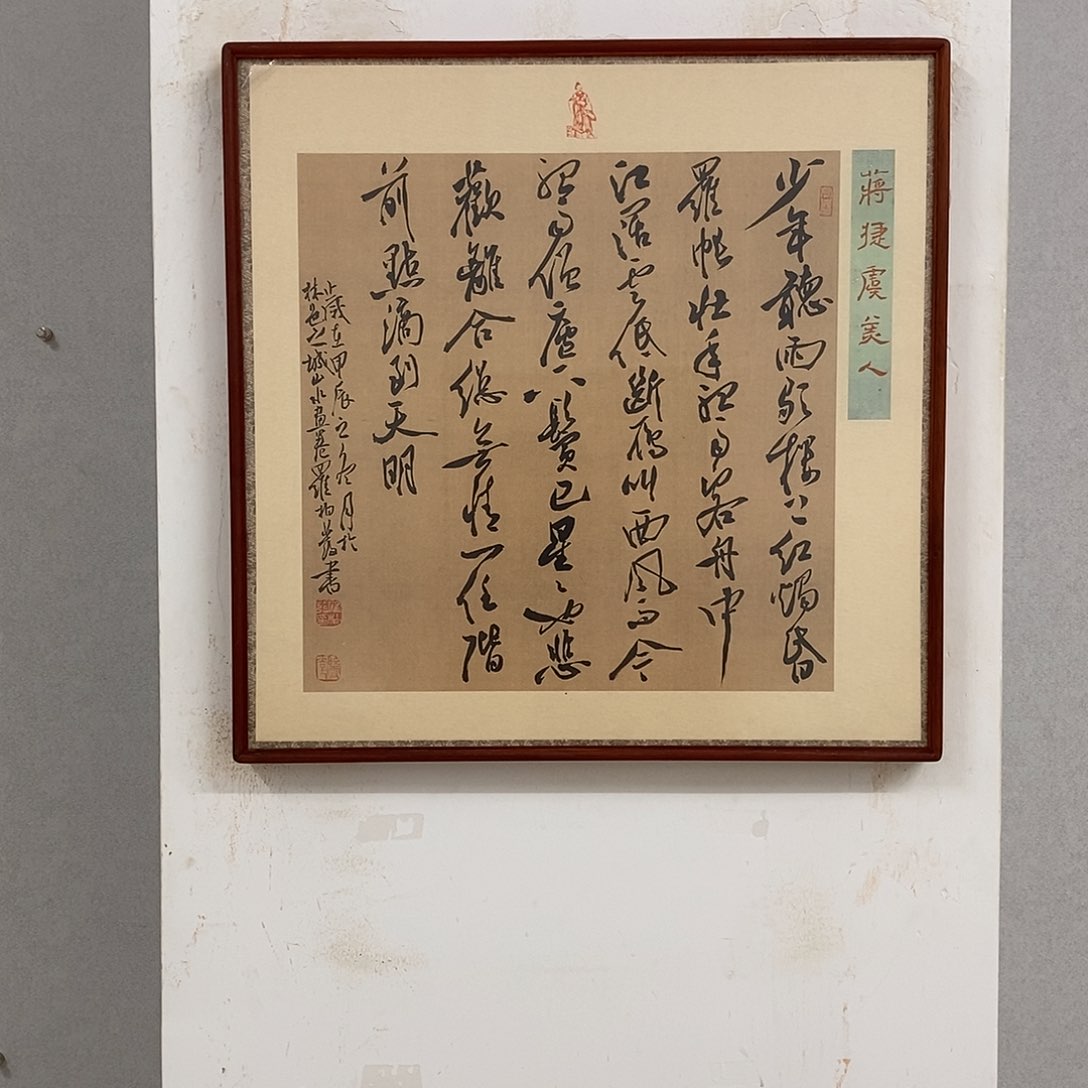 蔣捷虞美人
少年聽雨歌樓上紅燭昏
羅帳壯年聽雨客舟中
江闊云低斷雁叫西風而今
聽雨僧廬下鬢已星星也悲
歡離合總無情一任階
前點滴到天明
歲在甲辰之冬月於
株邑之城山水畫卷羅柏書